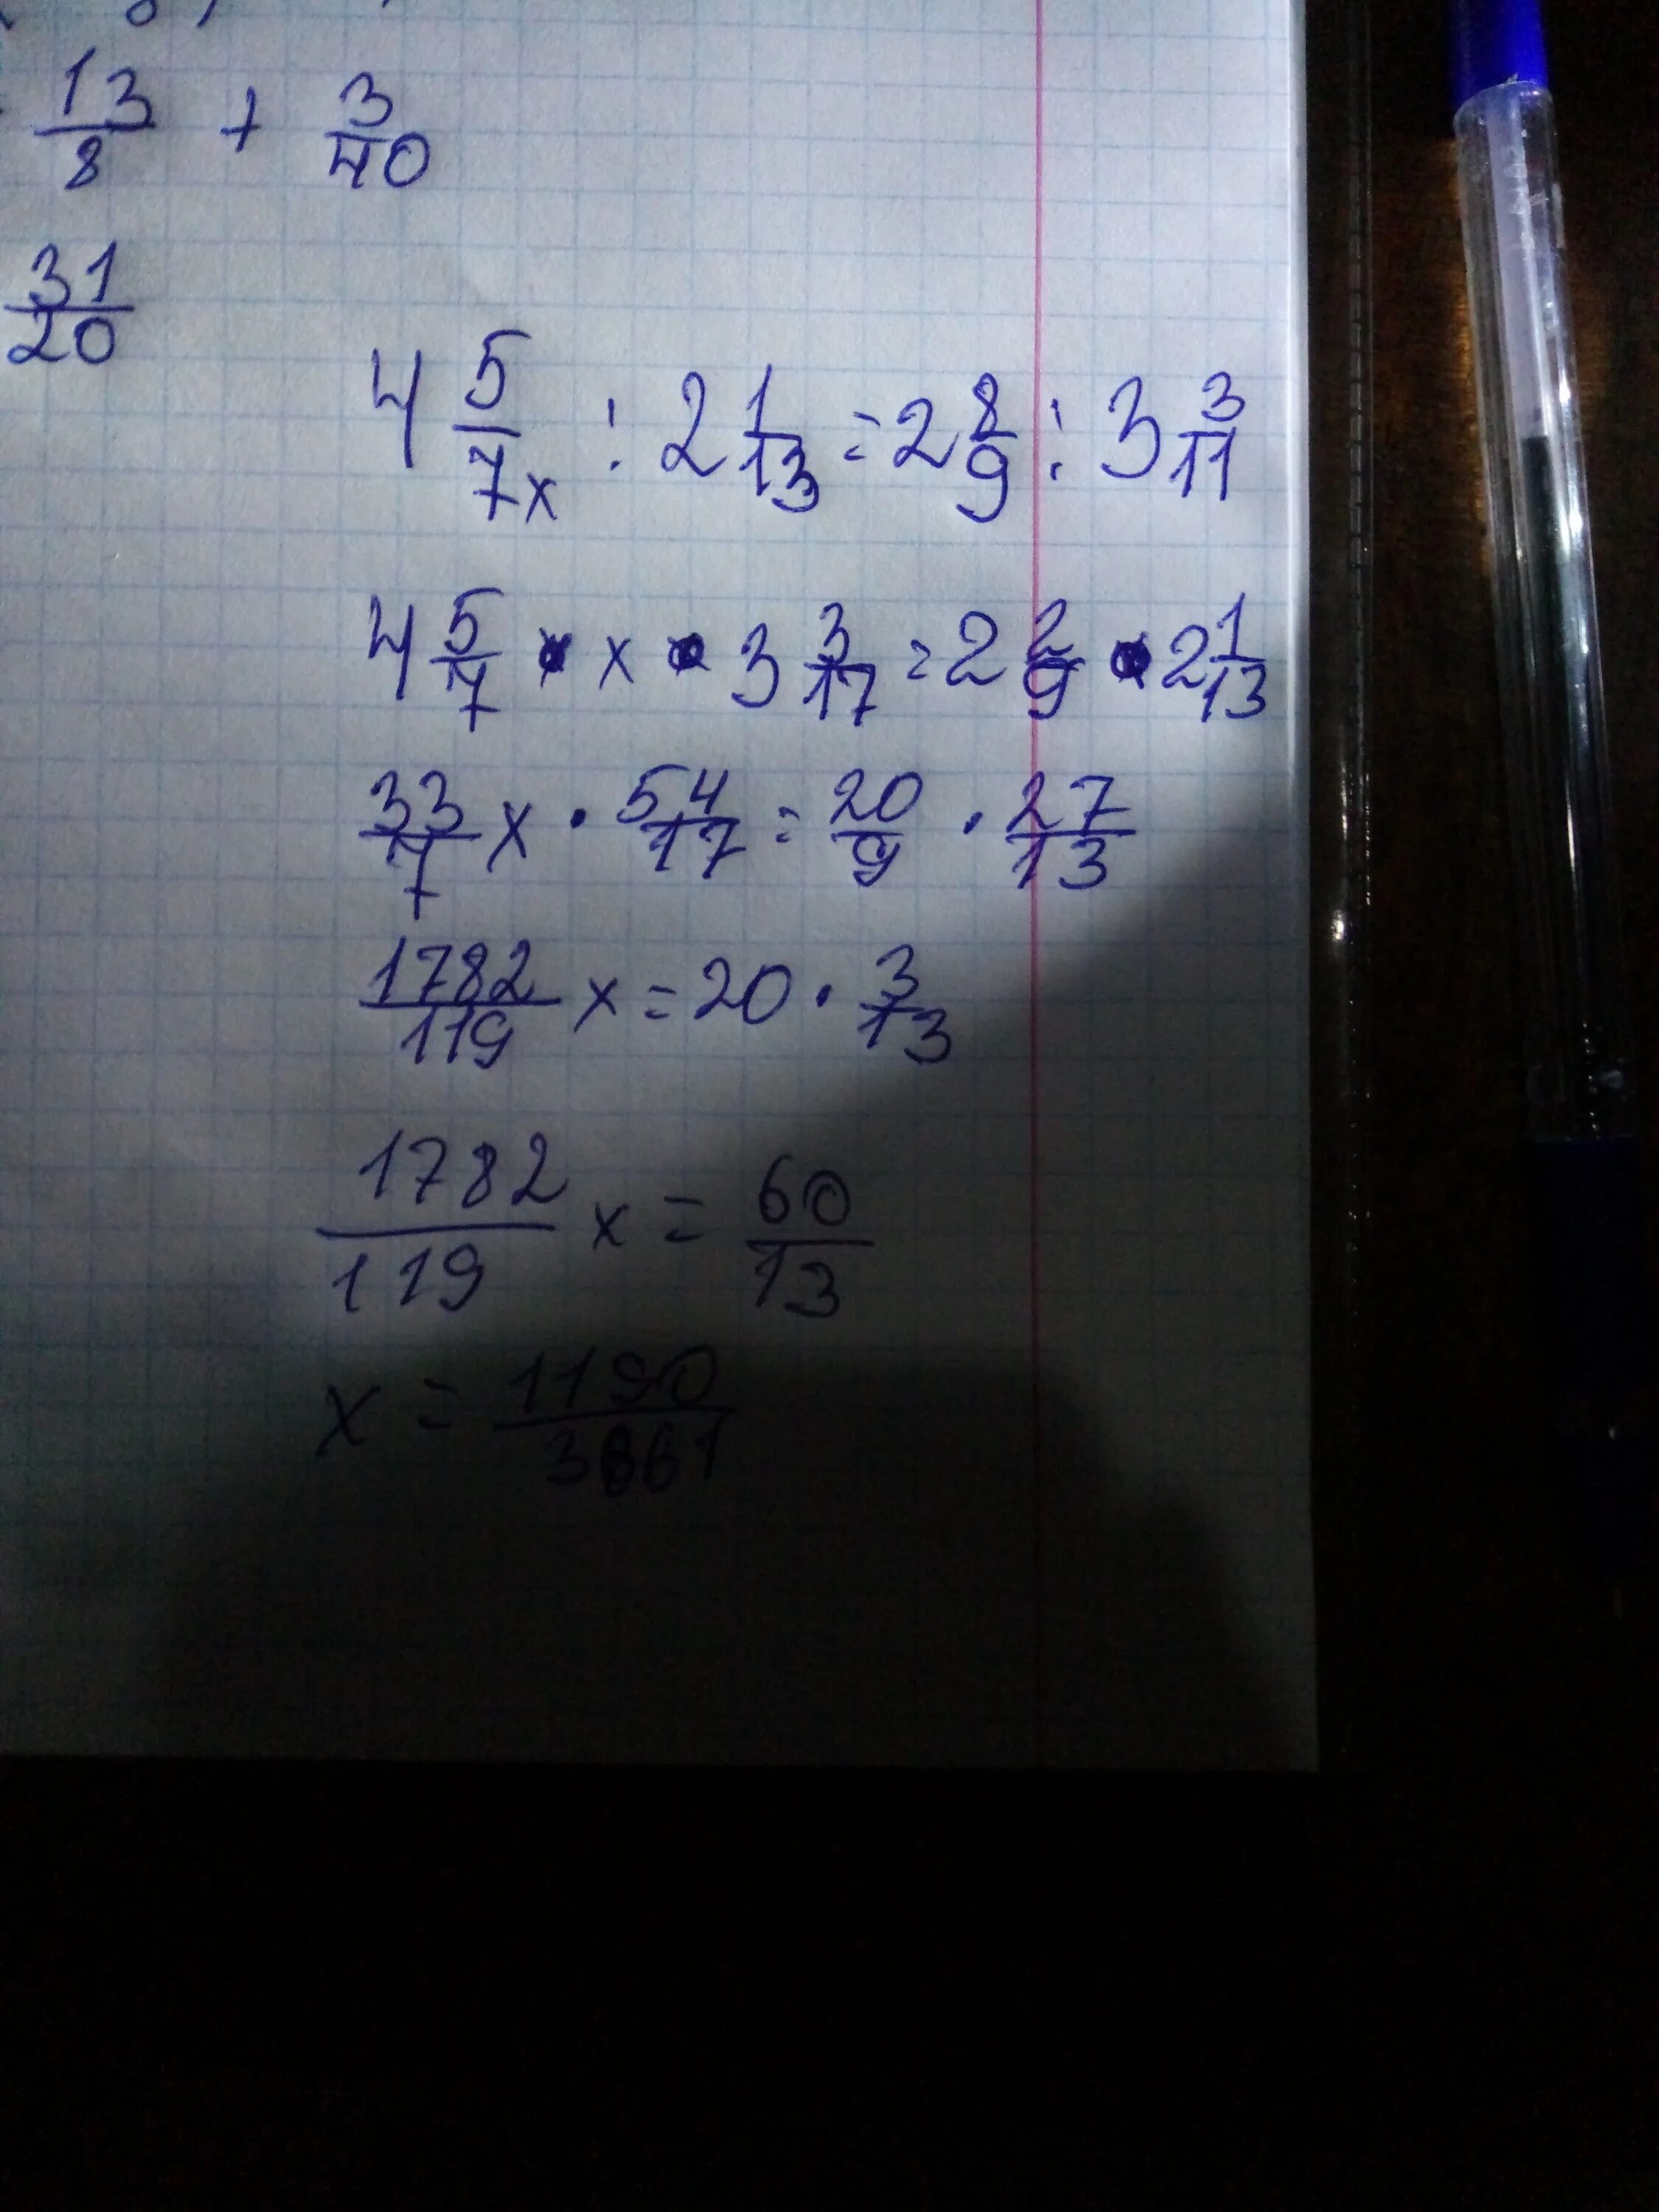 13/8 + 3/40
31/20
4 5/7x : 2 1/13 = 2 8/9 : 3 3/11
4 5/7 • x • 3 3/17 = 2 2/9 • 2 1/13
33/7 x · 54/17 = 20/9 · 27/13
1782/119 x = 20 · 3/13
1782/119 x = 60/13
x = 1190/3861